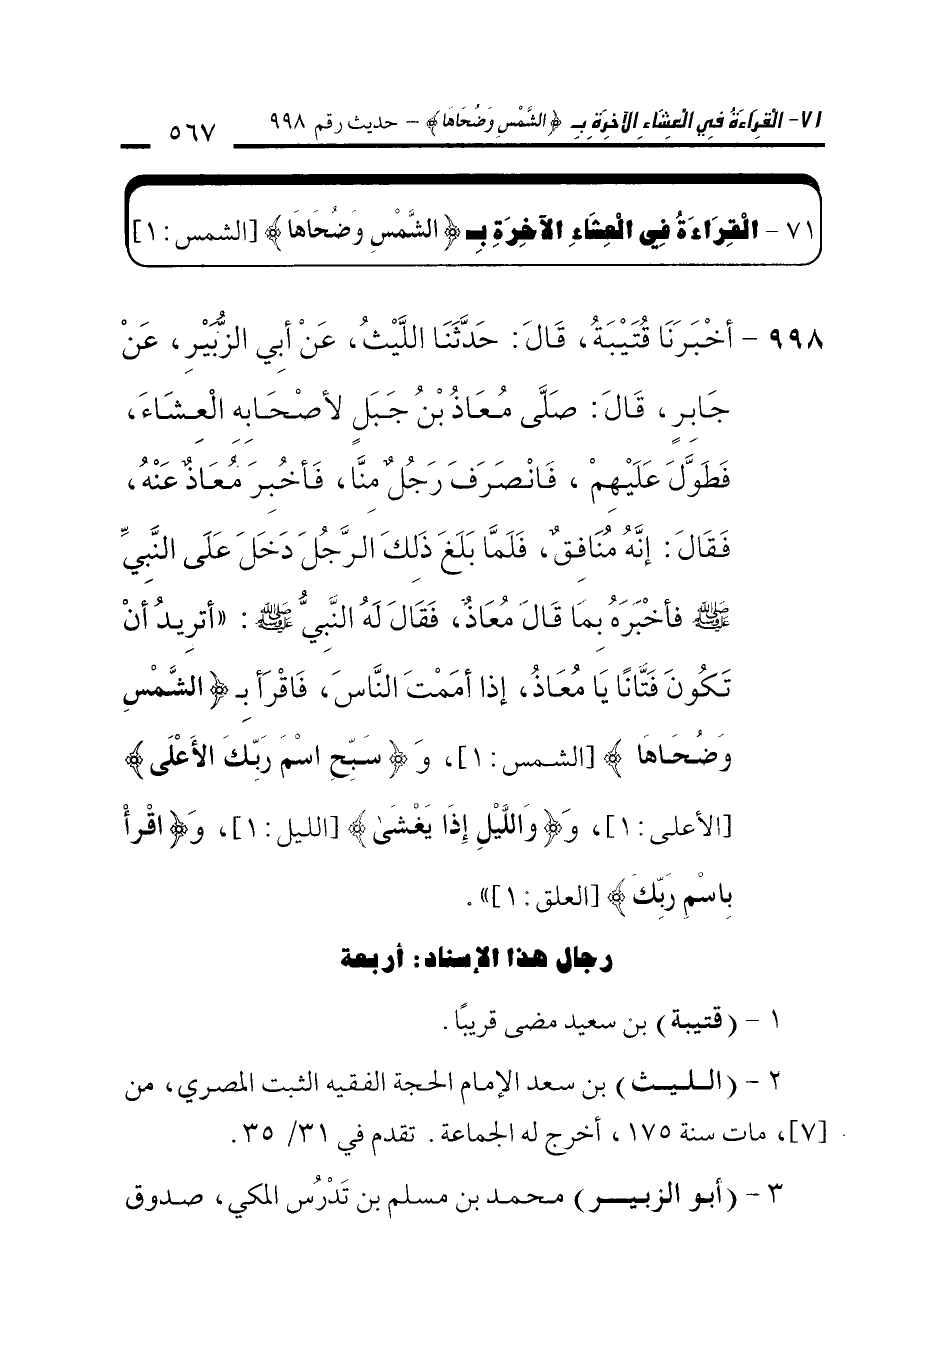 ٧١- الْقِرَاءَةُ فِي الْعِشَاءِ الآخِرَةِ بِـ ﴿الشَّمْسِ وَضُحَاهَا﴾ - حديث رقم ٩٩٨
٥٦٧
٧١ - الْقِرَاءَةُ فِي الْعِشَاءِ الآخِرَةِ بِـ ﴿الشَّمْسِ وَضُحَاهَا﴾ [الشمس: ١]
٩٩٨ - أخْبَرَنَا قُتَيْبَةُ، قَالَ: حَدَّثَنَا اللَّيْثُ، عَنْ أبِي الزُّبَيْرِ، عَنْ
جَابِرٍ، قَالَ: صَلَّى مُعَاذُ بْنُ جَبَلٍ لأصْحَابِهِ الْعِشَاءَ،
فَطَوَّلَ عَلَيْهِمْ، فَانْصَرَفَ رَجُلٌ مِنَّا، فَأخْبِرَ مُعَاذٌ عَنْهُ،
فَقَالَ: إنَّهُ مُنَافِقٌ، فَلَمَّا بَلَغَ ذَلِكَ الرَّجُلَ دَخَلَ عَلَى النَّبِيِّ
ﷺ فأخْبَرَهُ بِمَا قَالَ مُعَاذٌ، فَقَالَ لَهُ النَّبِيُّ ﷺ: «أتريدُ أنْ
تَكُونَ فَتَّانًا يَا مُعَاذُ، إذا أمَمْتَ النَّاسَ، فَاقْرَأ بِـ ﴿الشَّمْسِ
وَضُحَاهَا﴾ [الشمس: ١]، وَ ﴿سَبِّحِ اسْمَ رَبِّكَ الأَعْلَى﴾
[الأعلى: ١]، وَ﴿وَاللَّيْلِ إِذَا يَغْشَىٰ﴾ [الليل: ١]، وَ﴿اقْرأْ
بِاسْمِ رَبِّكَ﴾ [العلق: ١]».
رجال هذا الإسناد: أربعة
١ - (قتيبة) بن سعيد مضى قريبًا.
٢ - (الليث) بن سعد الإمام الحجة الفقيه الثبت المصري، من
[٧]، مات سنة ١٧٥، أخرج له الجماعة. تقدم في ٣١/ ٣٥.
٣ - (أبو الزبير) محمد بن مسلم بن تَدْرُس المكي، صدوق